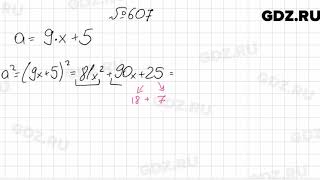 GDZ.RU
№607
a = 9·x+5
a² = (9x+5)² = 81x² + 90x + 25 =
18 + 7